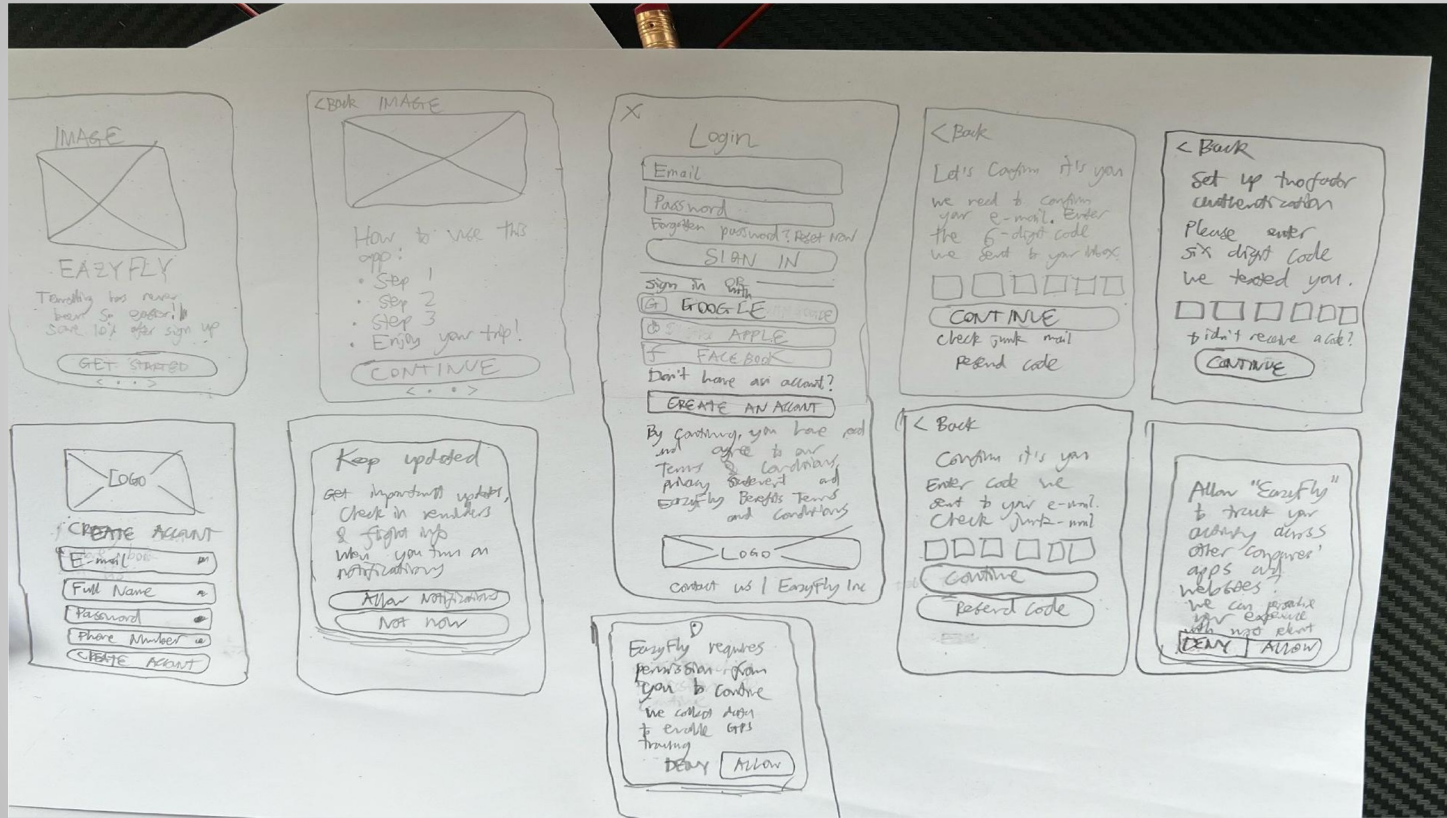 IMAGE
EAZYFLY
Travelling has never
been so easier!
Save 10% after sign up
GET STARTED
< • • >
<Back IMAGE
How to use this
app:
• Step 1
• Step 2
• Step 3
• Enjoy your trip!
CONTINUE
< • • >
X
Login
Email
Password
Forgotten password? Reset now
SIGN IN
sign in OR
with
G GOOGLE
APPLE
f FACEBOOK
Don't have an account?
CREATE AN ACCOUNT
By continuing, you have read
and agree to our
Terms & Conditions,
privacy statement and
EazyFly Benefits Terms
and conditions
LOGO
contact us | EazyFly Inc
< Back
Let's Confirm it's you
we need to confirm
your e-mail. Enter
the 6-digit code
we sent to your inbox.
CONTINUE
check junk mail
resend code
< Back
Set up two factor
authentication
Please enter
six digit code
we texted you.
Didn't receive a code?
CONTINUE
LOGO
CREATE ACCOUNT
E-mail
Full Name
Password
Phone Number
CREATE ACCOUNT
Keep updated
Get important updates,
Check in reminders
& flight info
when you turn on
notifications
Allow Notifications
Not now
EazyFly requires
permission from
you to continue
We collect data
to enable GPS
tracking
DENY ALLOW
< Back
Confirm it's you
Enter code we
sent to your e-mail.
Check junk-mail
Continue
Resend Code
Allow "EazyFly"
to track your
activity across
other companies'
apps and
websites?
We can
your experience
with most
DENY ALLOW